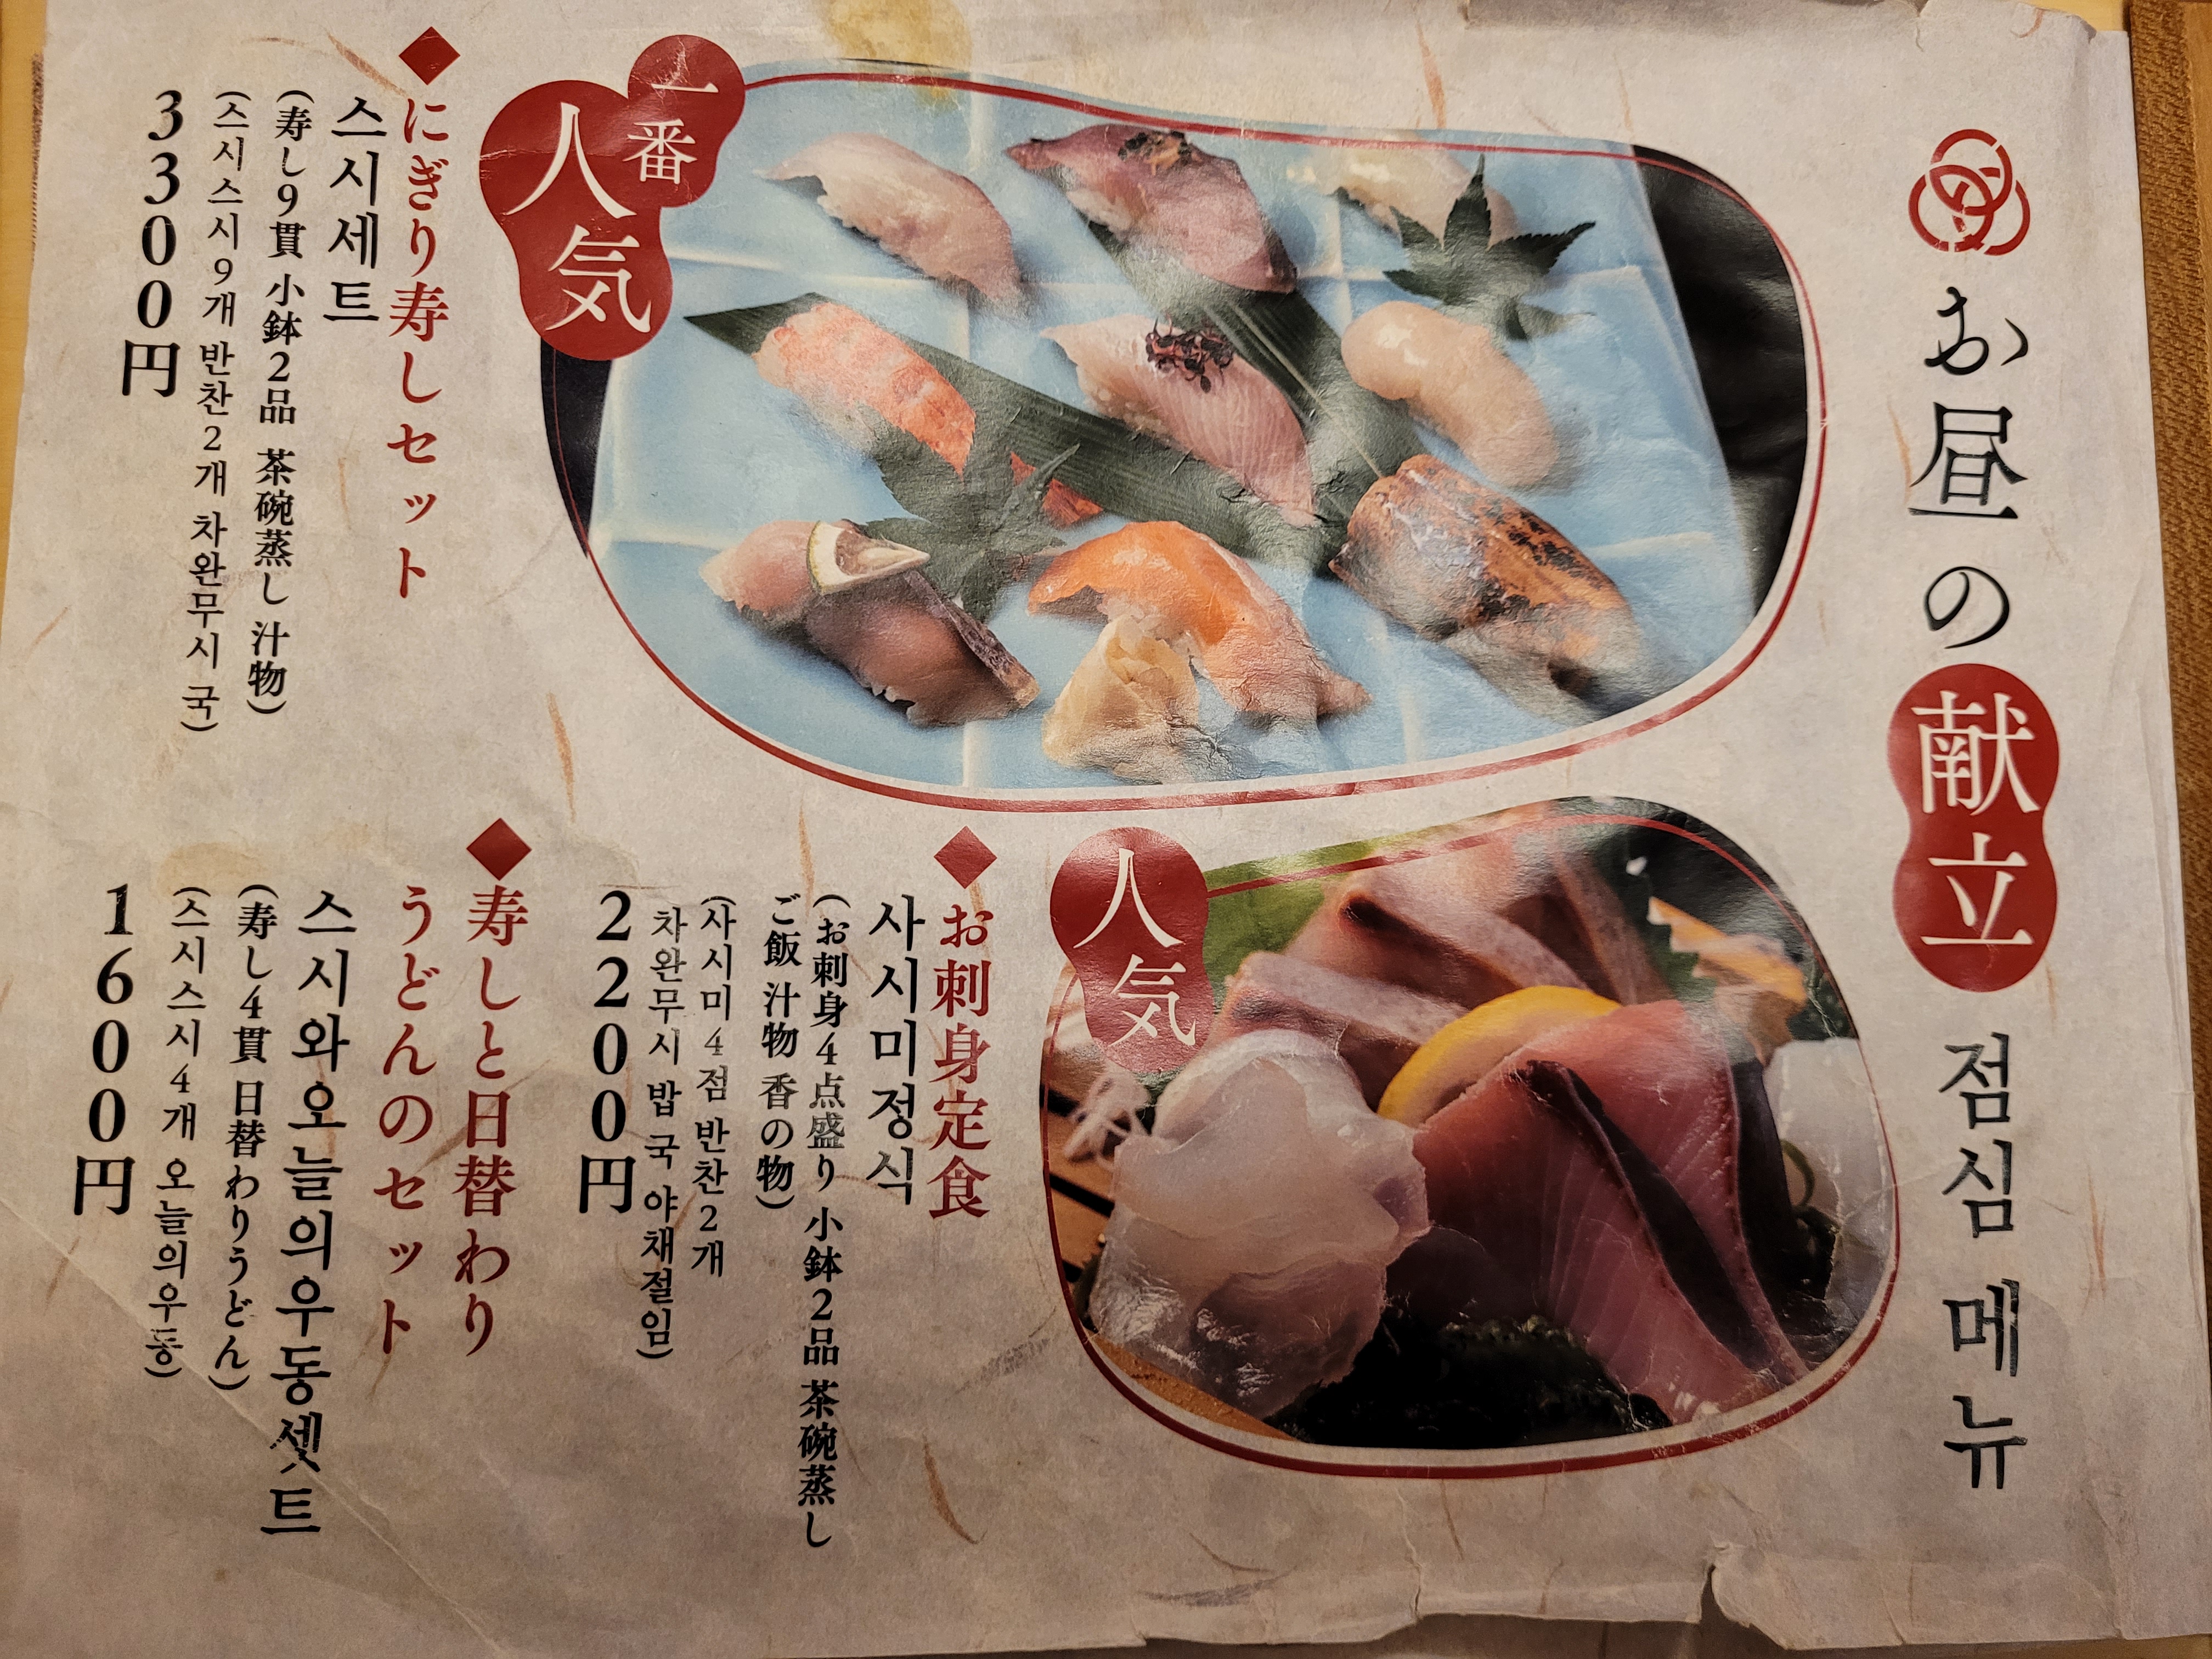 お昼の献立 점심 메뉴
一番
人気
人気
◆お刺身定食
사시미정식
(お刺身4点盛り 小鉢2品 茶碗蒸し
ご飯 汁物 香の物)
(사시미4점 반찬2개
차완무시 밥 국 야채절임)
2200円
◆にぎり寿しセット
스시세트
(寿し9貫 小鉢2品 茶碗蒸し 汁物)
(스시스시9개 반찬2개 차완무시 국)
3300円
◆寿しと日替わり
うどんのセット
스시와오늘의우동셋트
(寿し4貫 日替わりうどん)
(스시스시4개 오늘의우동)
1600円